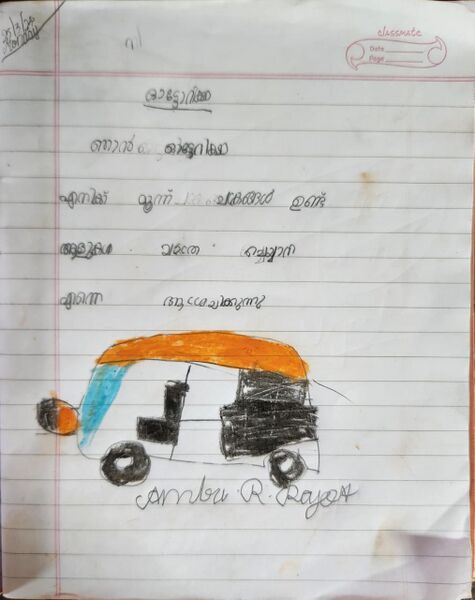 classmate
Date
Page
ഓട്ടോറിക്ഷ
ഞാൻ ഓട്ടോറിക്ഷ
എനിക്ക് മൂന്ന് ചക്രങ്ങൾ ഉണ്ട്
ആളുകൾ യാത്ര ചെയ്യാൻ
എന്നെ ആശ്രയിക്കുന്നു
Ambu R. Rajesh